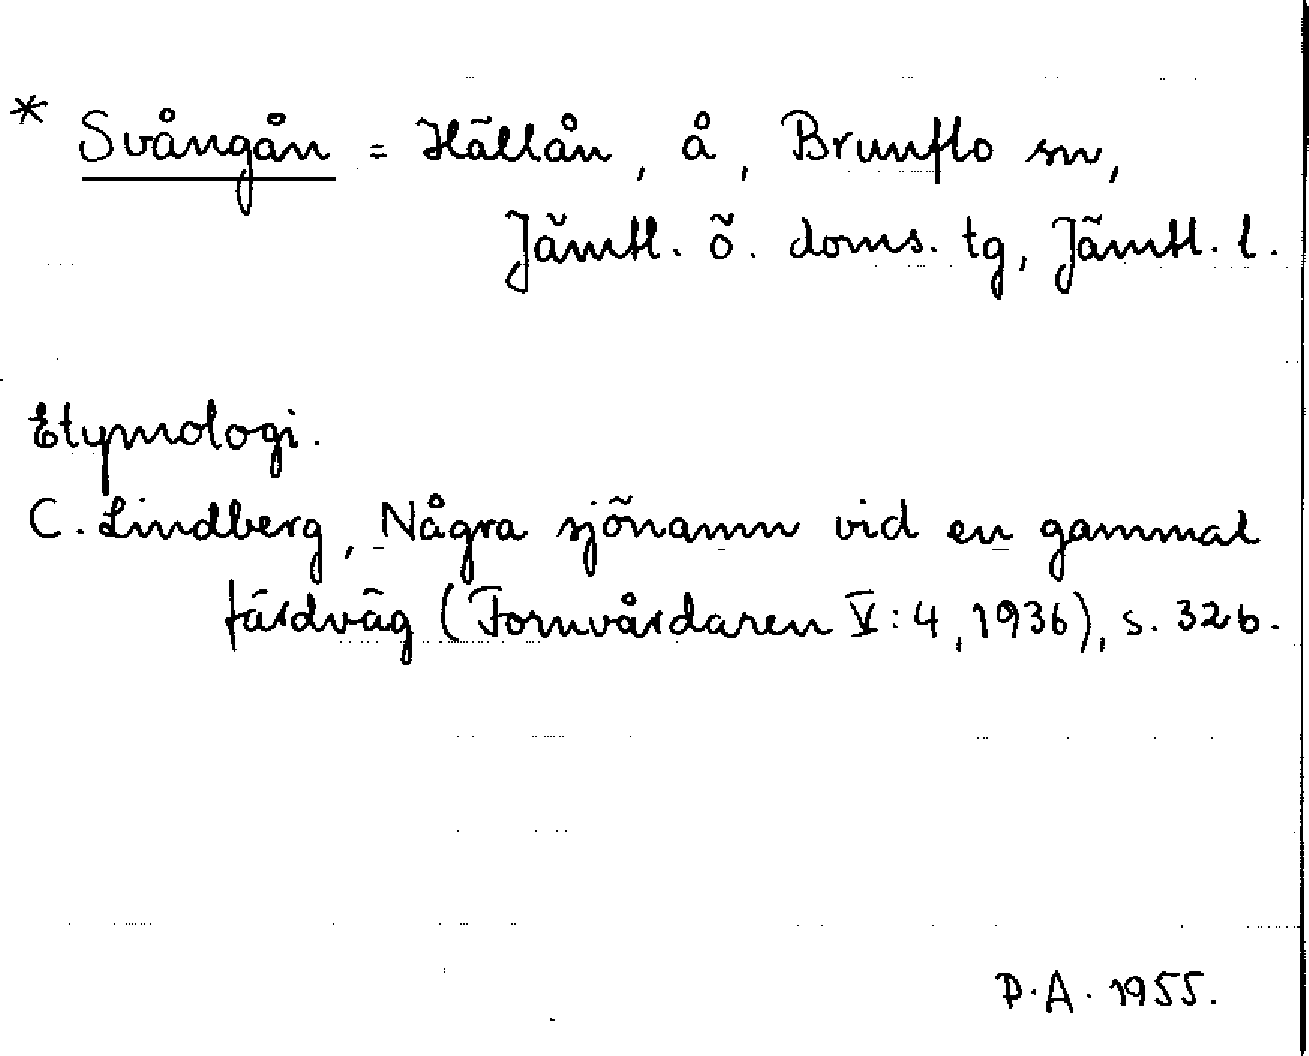 * Svångån = Hällån, å, Brunflo sn,
Jämtl. ö. doms. tg, Jämtl. l.
Etymologi.
C. Lindberg, Några sjönamn vid en gammal
färdväg (Fornvårdaren V:4, 1936), s. 326.
D.A. 1955.